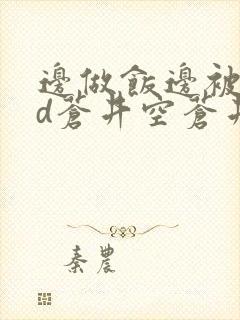 邊做飯邊被
d蒼井空蒼井
秦農